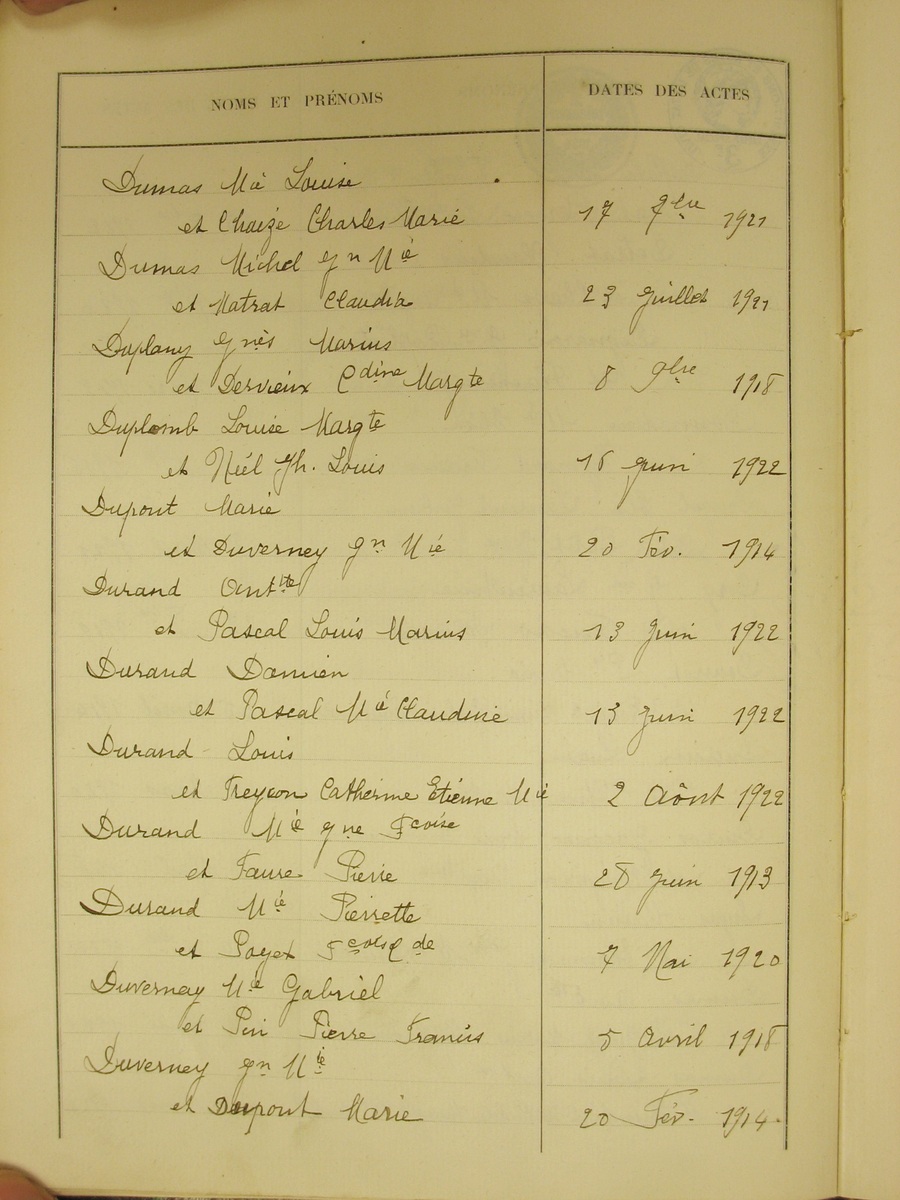 NOMS ET PRÉNOMS DATES DES ACTES
Dumas Mie Louise
et Chaize Charles Marie 17 7bre 1921
Dumas Michel Jn Mie
et Matrat Claudia 23 Juillet 1921
Duplany Jnès Marius
et Dervieux Cdine Margte 8 9bre 1918
Duplomb Louise Margte
et Niél Jh. Louis 16 Juin 1922
Dupont Marie
et Duverney Jn Mie 20 Fév. 1914
Durand Antte
et Pascal Louis Marius 13 Juin 1922
Durand Damien
et Pascal Mie Claudine 13 Juin 1922
Durand Louis
et Freycon Catherine Etienne Mie 2 Août 1922
Durand Mie Jne Fcoise
et Faure Pierre 28 Juin 1913
Durand Mie Pierrette
et Payet Fcois Cde 7 Mai 1920
Duvernay Mie Gabriel
et Pin Pierre Francis 5 Avril 1918
Duverney Jn Mie
et Dupont Marie 20 Fév. 1914.